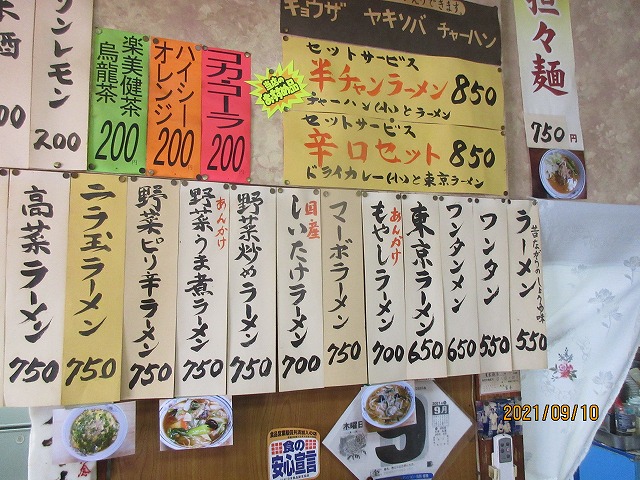 できます
キョウザ ヤキソバ チャーハン
セットサービス
半チャンラーメン 850
チャーハン(小)とラーメン
セットサービス
辛口セット 850
ドライカレー(小)と東京ラーメン
担々麺
750円
コカ・コーラ
200
ハイシー
オレンジ
200
楽美健茶
烏龍茶
200
ソンレモン
200
酒
ラーメン
昔ながらのしょうゆ味
550
ワンタン
550
ワンタンメン
650
東京ラーメン
650
あんかけ
もやしラーメン
700
マーボラーメン
750
国産
しいたけラーメン
700
野菜炒めラーメン
750
あんかけ
野菜うま煮ラーメン
750
野菜ピリ辛ラーメン
750
ニラ玉ラーメン
750
高菜ラーメン
750
食の
安心宣言
9月
木曜日
2021/09/10